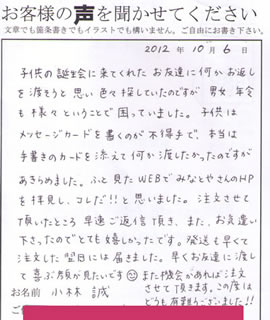 お客様の声を聞かせてください
文章でも箇条書きでもイラストでも構いません。ご自由にお書き下さい。
2012年10月6日
子供の誕生会に来てくれたお友達に何かお返し
を渡そうと思い色々探していたのですが男女年令
も様々ということで困っていました。子供は
メッセージカードを書くのが不得手で、本当は
手書きのカードを添えて何か渡したかったのですが
あきらめました。ふと見たWEBでみなとやさんのHP
を拝見し、コレだ!!と思いました。注文させて
頂いたところ早速ご返信頂き、また、お気遣い
下さったのでとても嬉しかったです。発送も早くて
注文した翌日には届きました。早くお友達に渡し
て喜ぶ顔が見たいです また機会があれば注文
させて頂きます。この度は
どうも有難うございました!!
お名前 小林